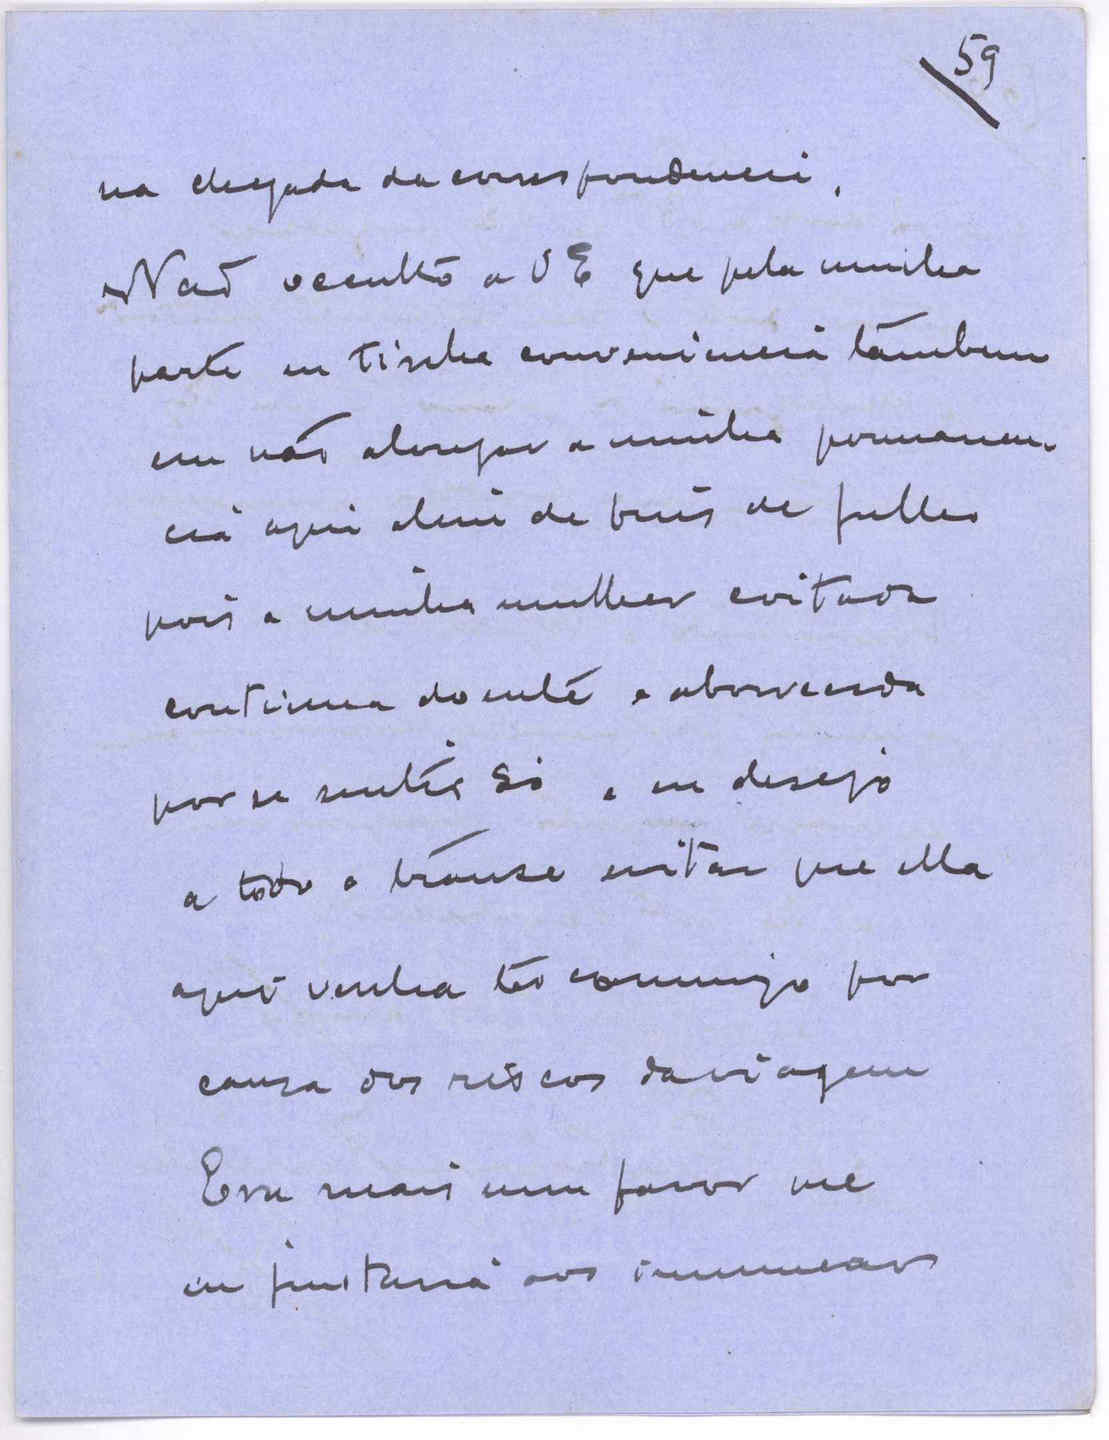 59
na chegada da correspondencia.
Não occulto a V E que pela minha
parte eu tinha conveniencia tambem
em não alongar a minha permanen-
cia aqui alem de fins de julho
pois a minha mulher coitada
continua doente e aborrecida
por se sentir só e eu desejo
a todo o transe evitar que ella
aqui venha ter commigo por
causa dos riscos da viagem
Era mais um favor que
eu juntaria aos innumeros